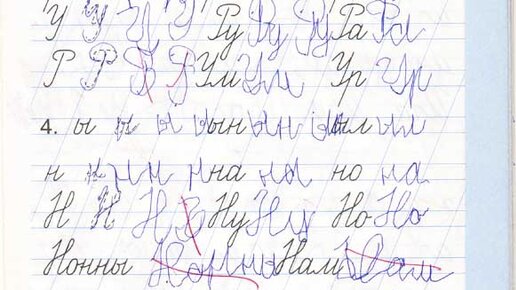 У У У У Ру Ру Ру Ра Ра
Р Р Р Р Ум Ум Ур Ур
4. ы ы ы ы ын ын ыл ыл
н н н н н на на но на
Н Н Н Ну Ну Но Но
Нонны Нонны Нам Вам